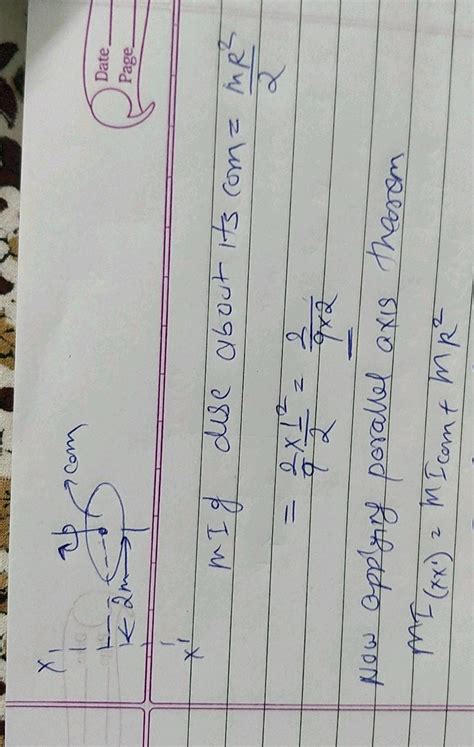 Date
Page
x
com
2m
x'
mI of disc about its com = mR²/2
= 2/9 × 1²/2 = 2/9×2
Now applying parallel axis theorem
MI(xx') = MIcom + MR²